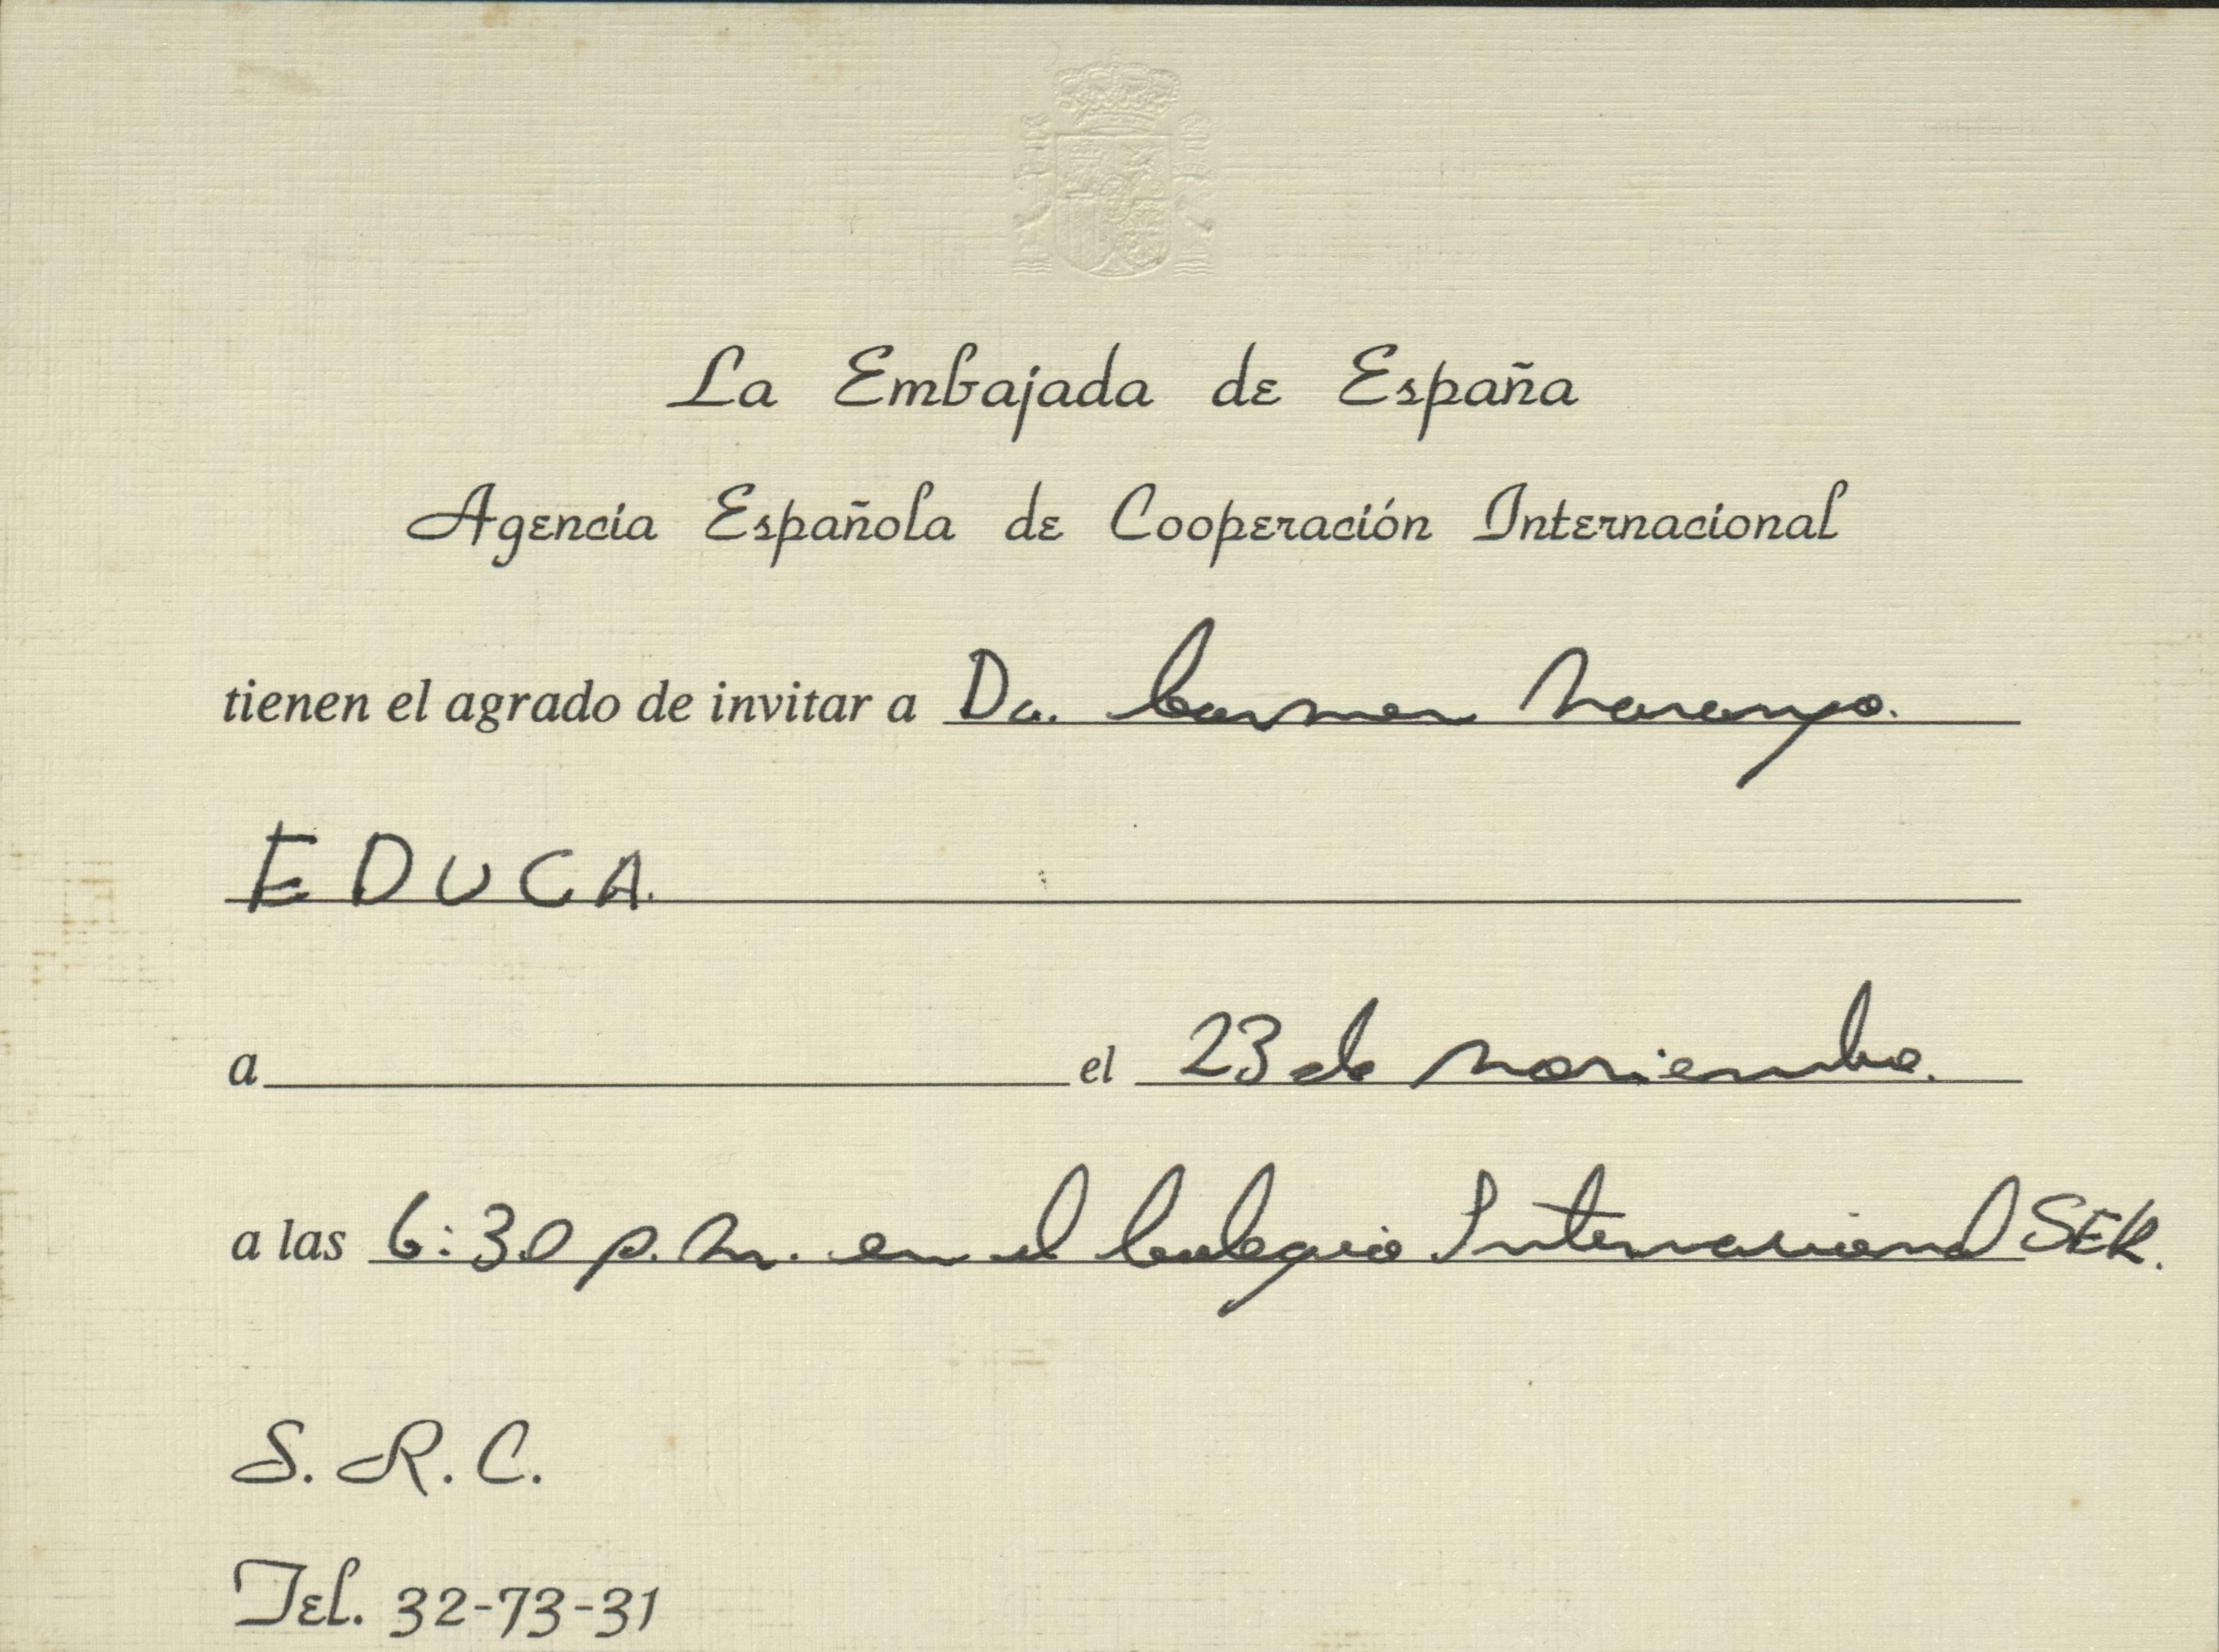 La Embajada de España
Agencia Española de Cooperación Internacional
tienen el agrado de invitar a Da. Carmen Naranjo.
EDUCA.
a el 23 de noviembre.
a las 6:30 p.m. en el Colegio Internacional SEK.
S. R. C.
Tel. 32-73-31